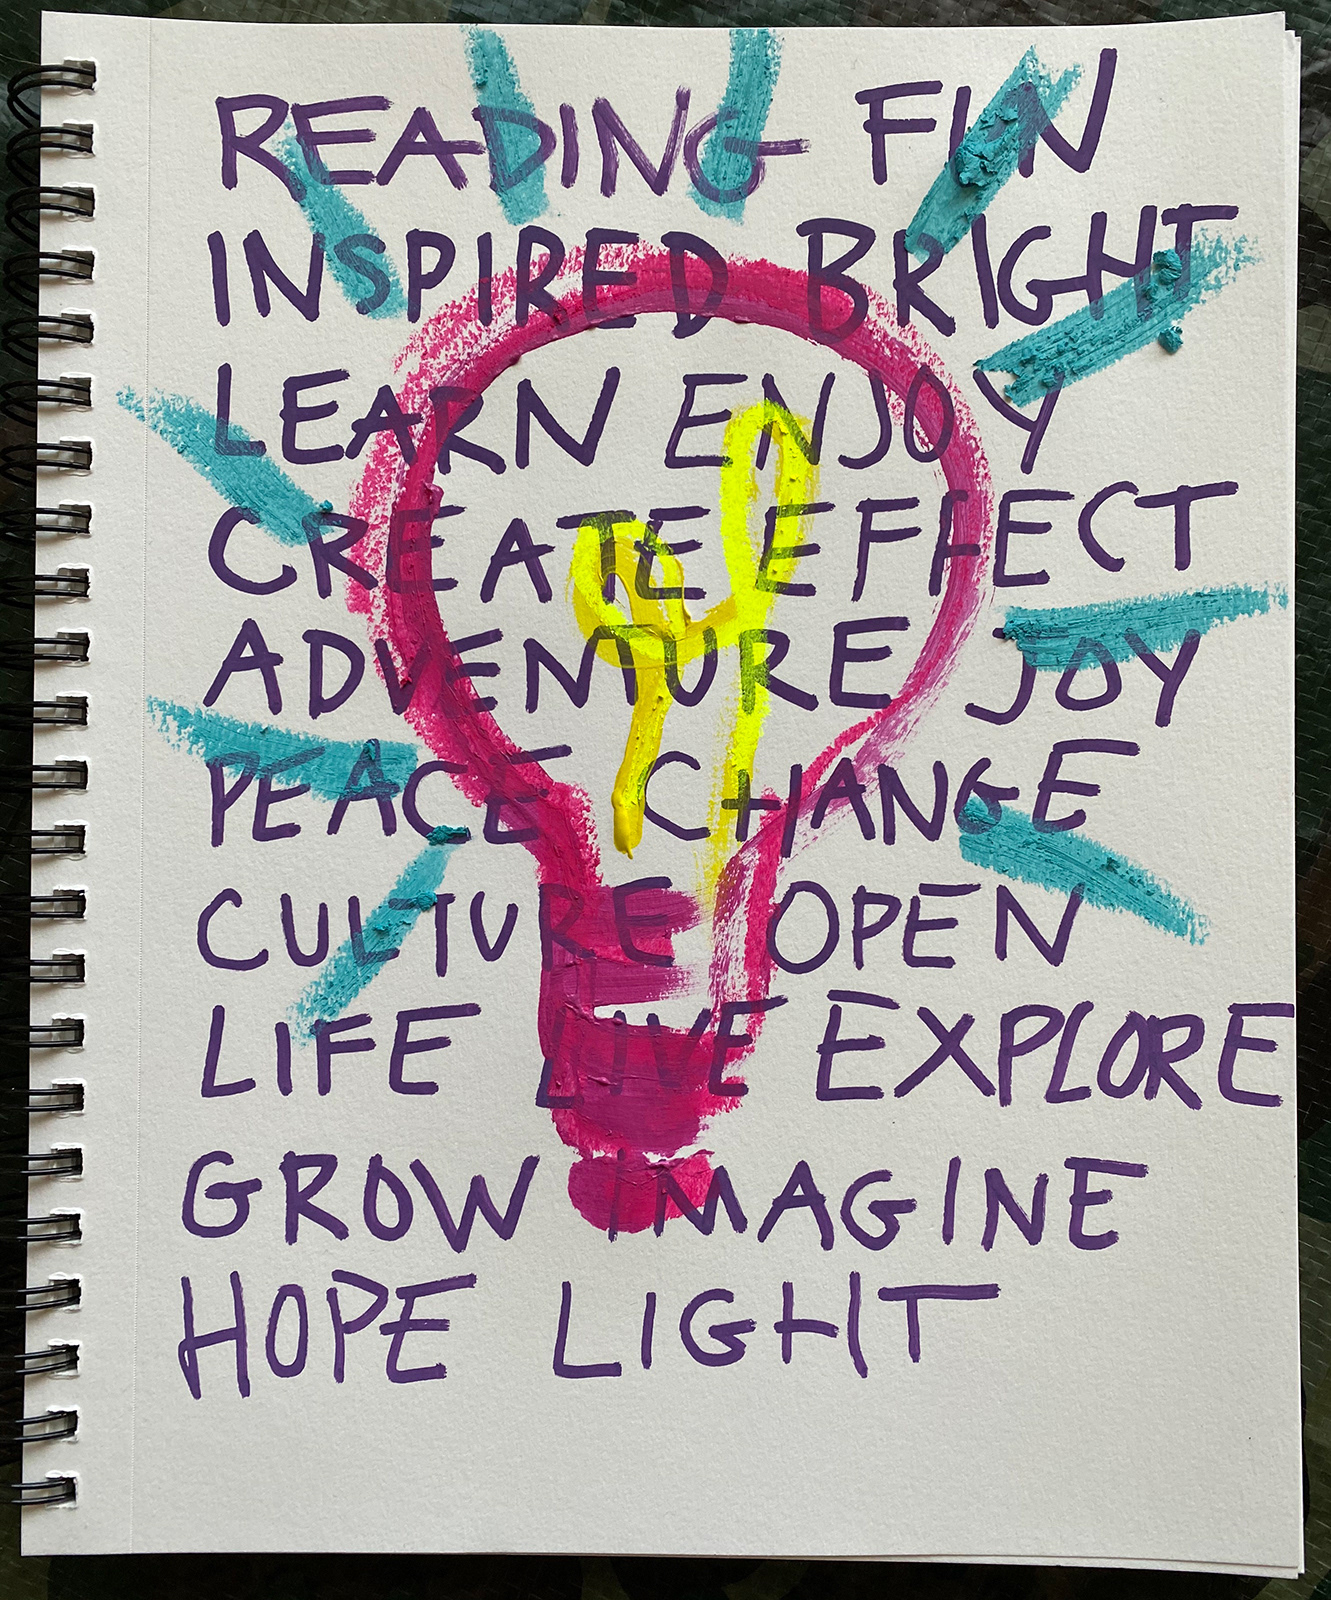 READING FUN
INSPIRED BRIGHT
LEARN ENJOY
CREATE EFFECT
ADVENTURE JOY
PEACE CHANGE
CULTURE OPEN
LIFE LIVE EXPLORE
GROW IMAGINE
HOPE LIGHT